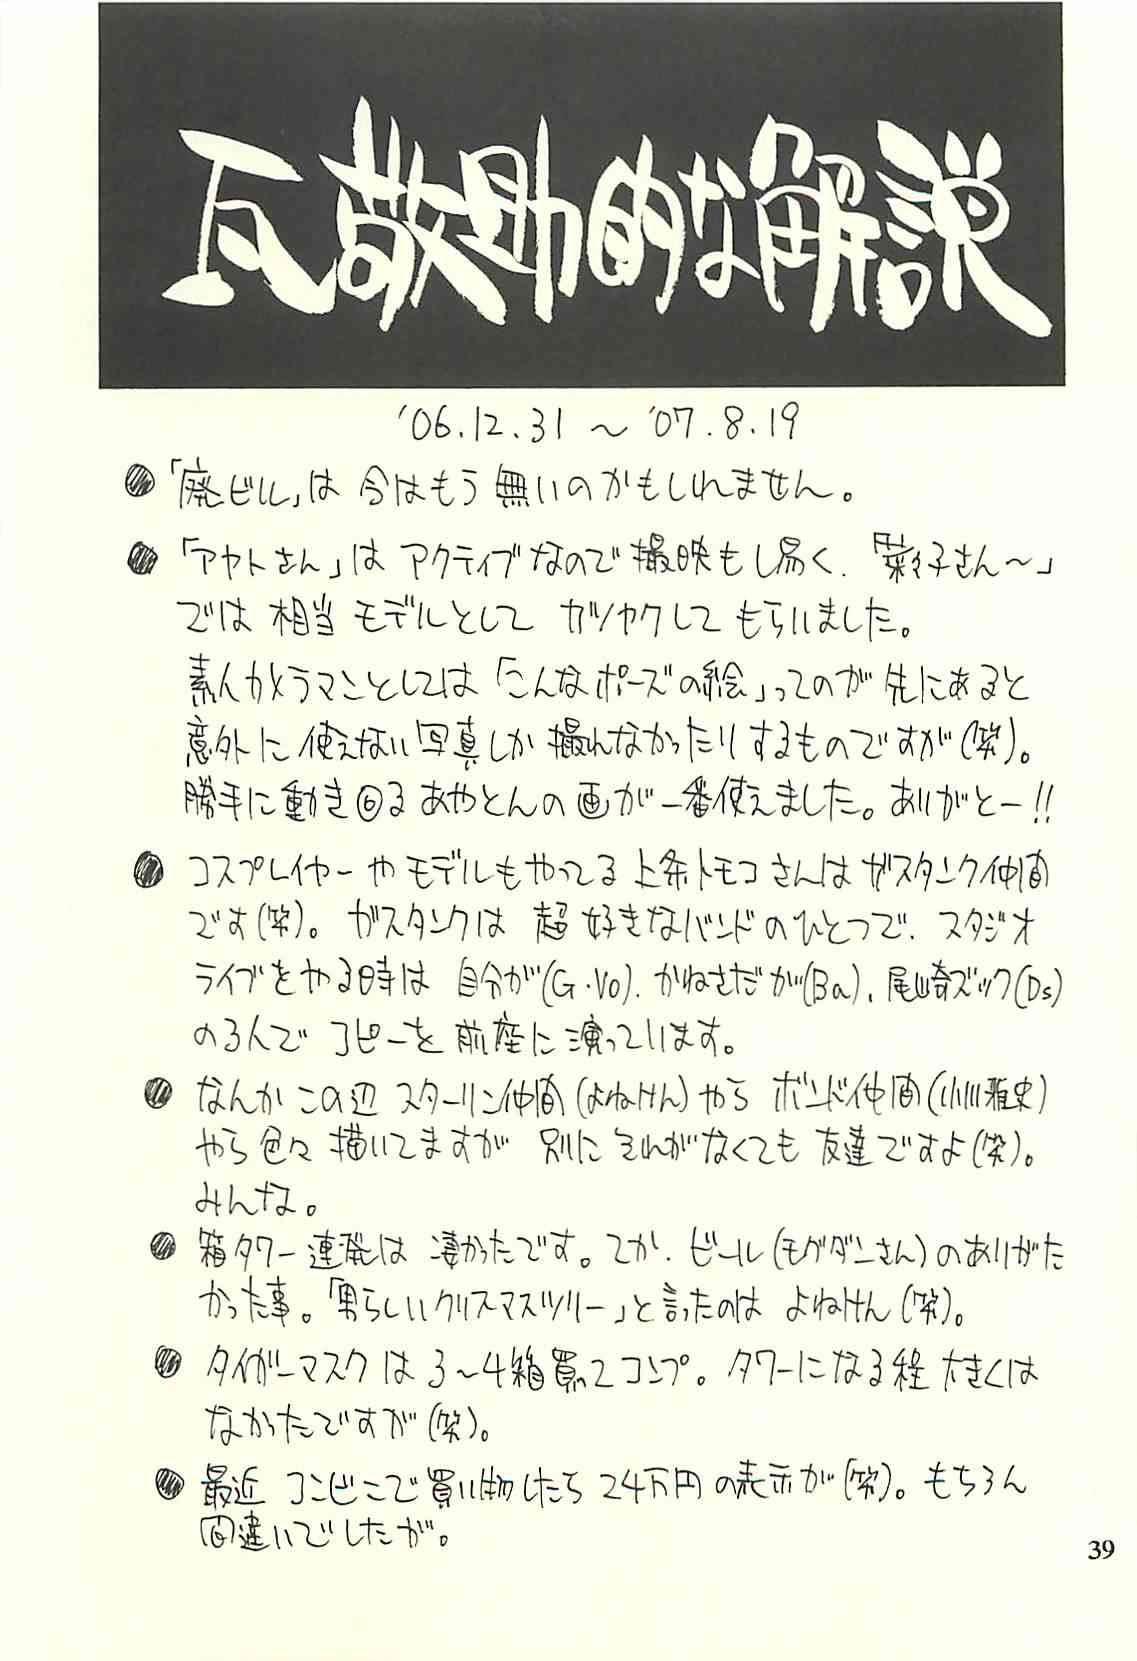 瓦敬助的な解説
'06.12.31 〜 '07.8.19
●「廃ビル」は 今はもう 無いのかもしれません。
●「アヤトさん」は アクティブなので 撮映もし易く、「菜々子さん〜」
では 相当 モデルとして カツヤクして もらいました。
素人カメラマンとしては「こんなポーズの絵」ってのが 先にあると
意外に 使えない 写真しか 撮れなかったりするものですが(笑)。
勝手に動き回る あやとんの 画が 一番使えました。ありがとー!!
● コスプレイヤーや モデルもやってる 上条トモコさんは ガスタンク仲間
です(笑)。ガスタンクは 超 好きなバンドのひとつで、スタジオ
ライブをやる時は 自分が(G・Vo)、かねさだが(Ba)、尾崎ズック(Ds)
のるんで コピーを 前座に 演っています。
● なんか この辺 スターリン仲間(よねけん)やら ボンド仲間(小川雅史)
やら 色々 描いてますが 別に それがなくても 友達ですよ(笑)。
みんな。
● 箱タワー 連発は 凄かったです。てか、ビール(モグダンさん)のありがた
かった事。「男らしいクリスマスツリー」と言ったのは よねけん(笑)。
● タイガーマスクは 3〜4箱買ってコンプ。タワーになる程 大きくは
なかったですが(笑)。
● 最近 コンビニで 買い物したら 24万円の表示が(笑)。もちろん
間違いでしたが。
39